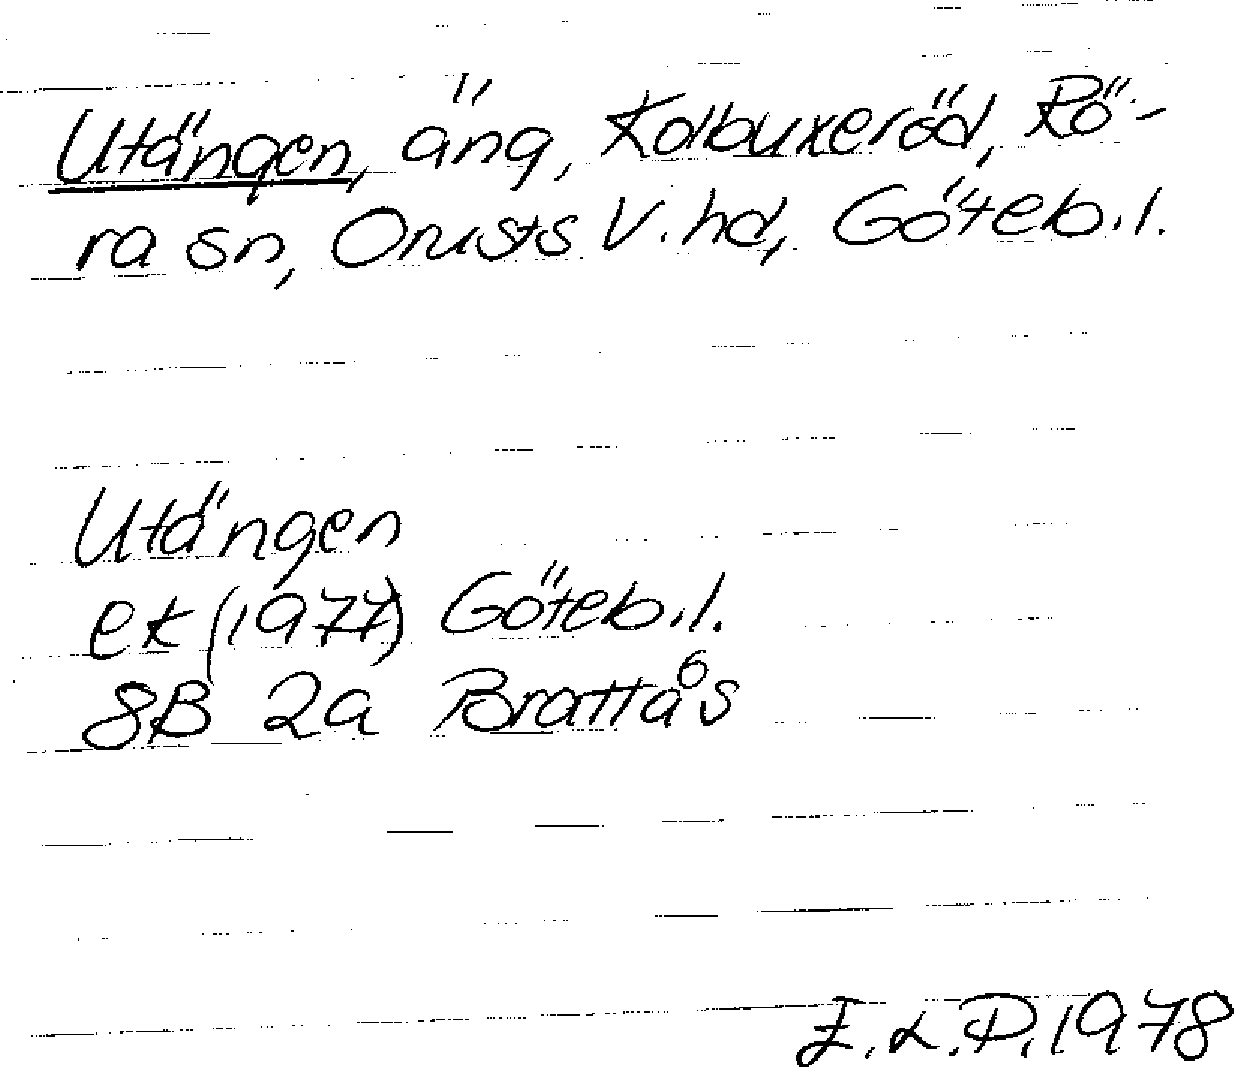 Utängen, äng, Kolbuxeröd, Rö-
ra sn, Orusts V. hd, Göteb. l.
Utängen
ek (1977) Göteb. l.
8B 2a Brattås
E.L.P. 1978